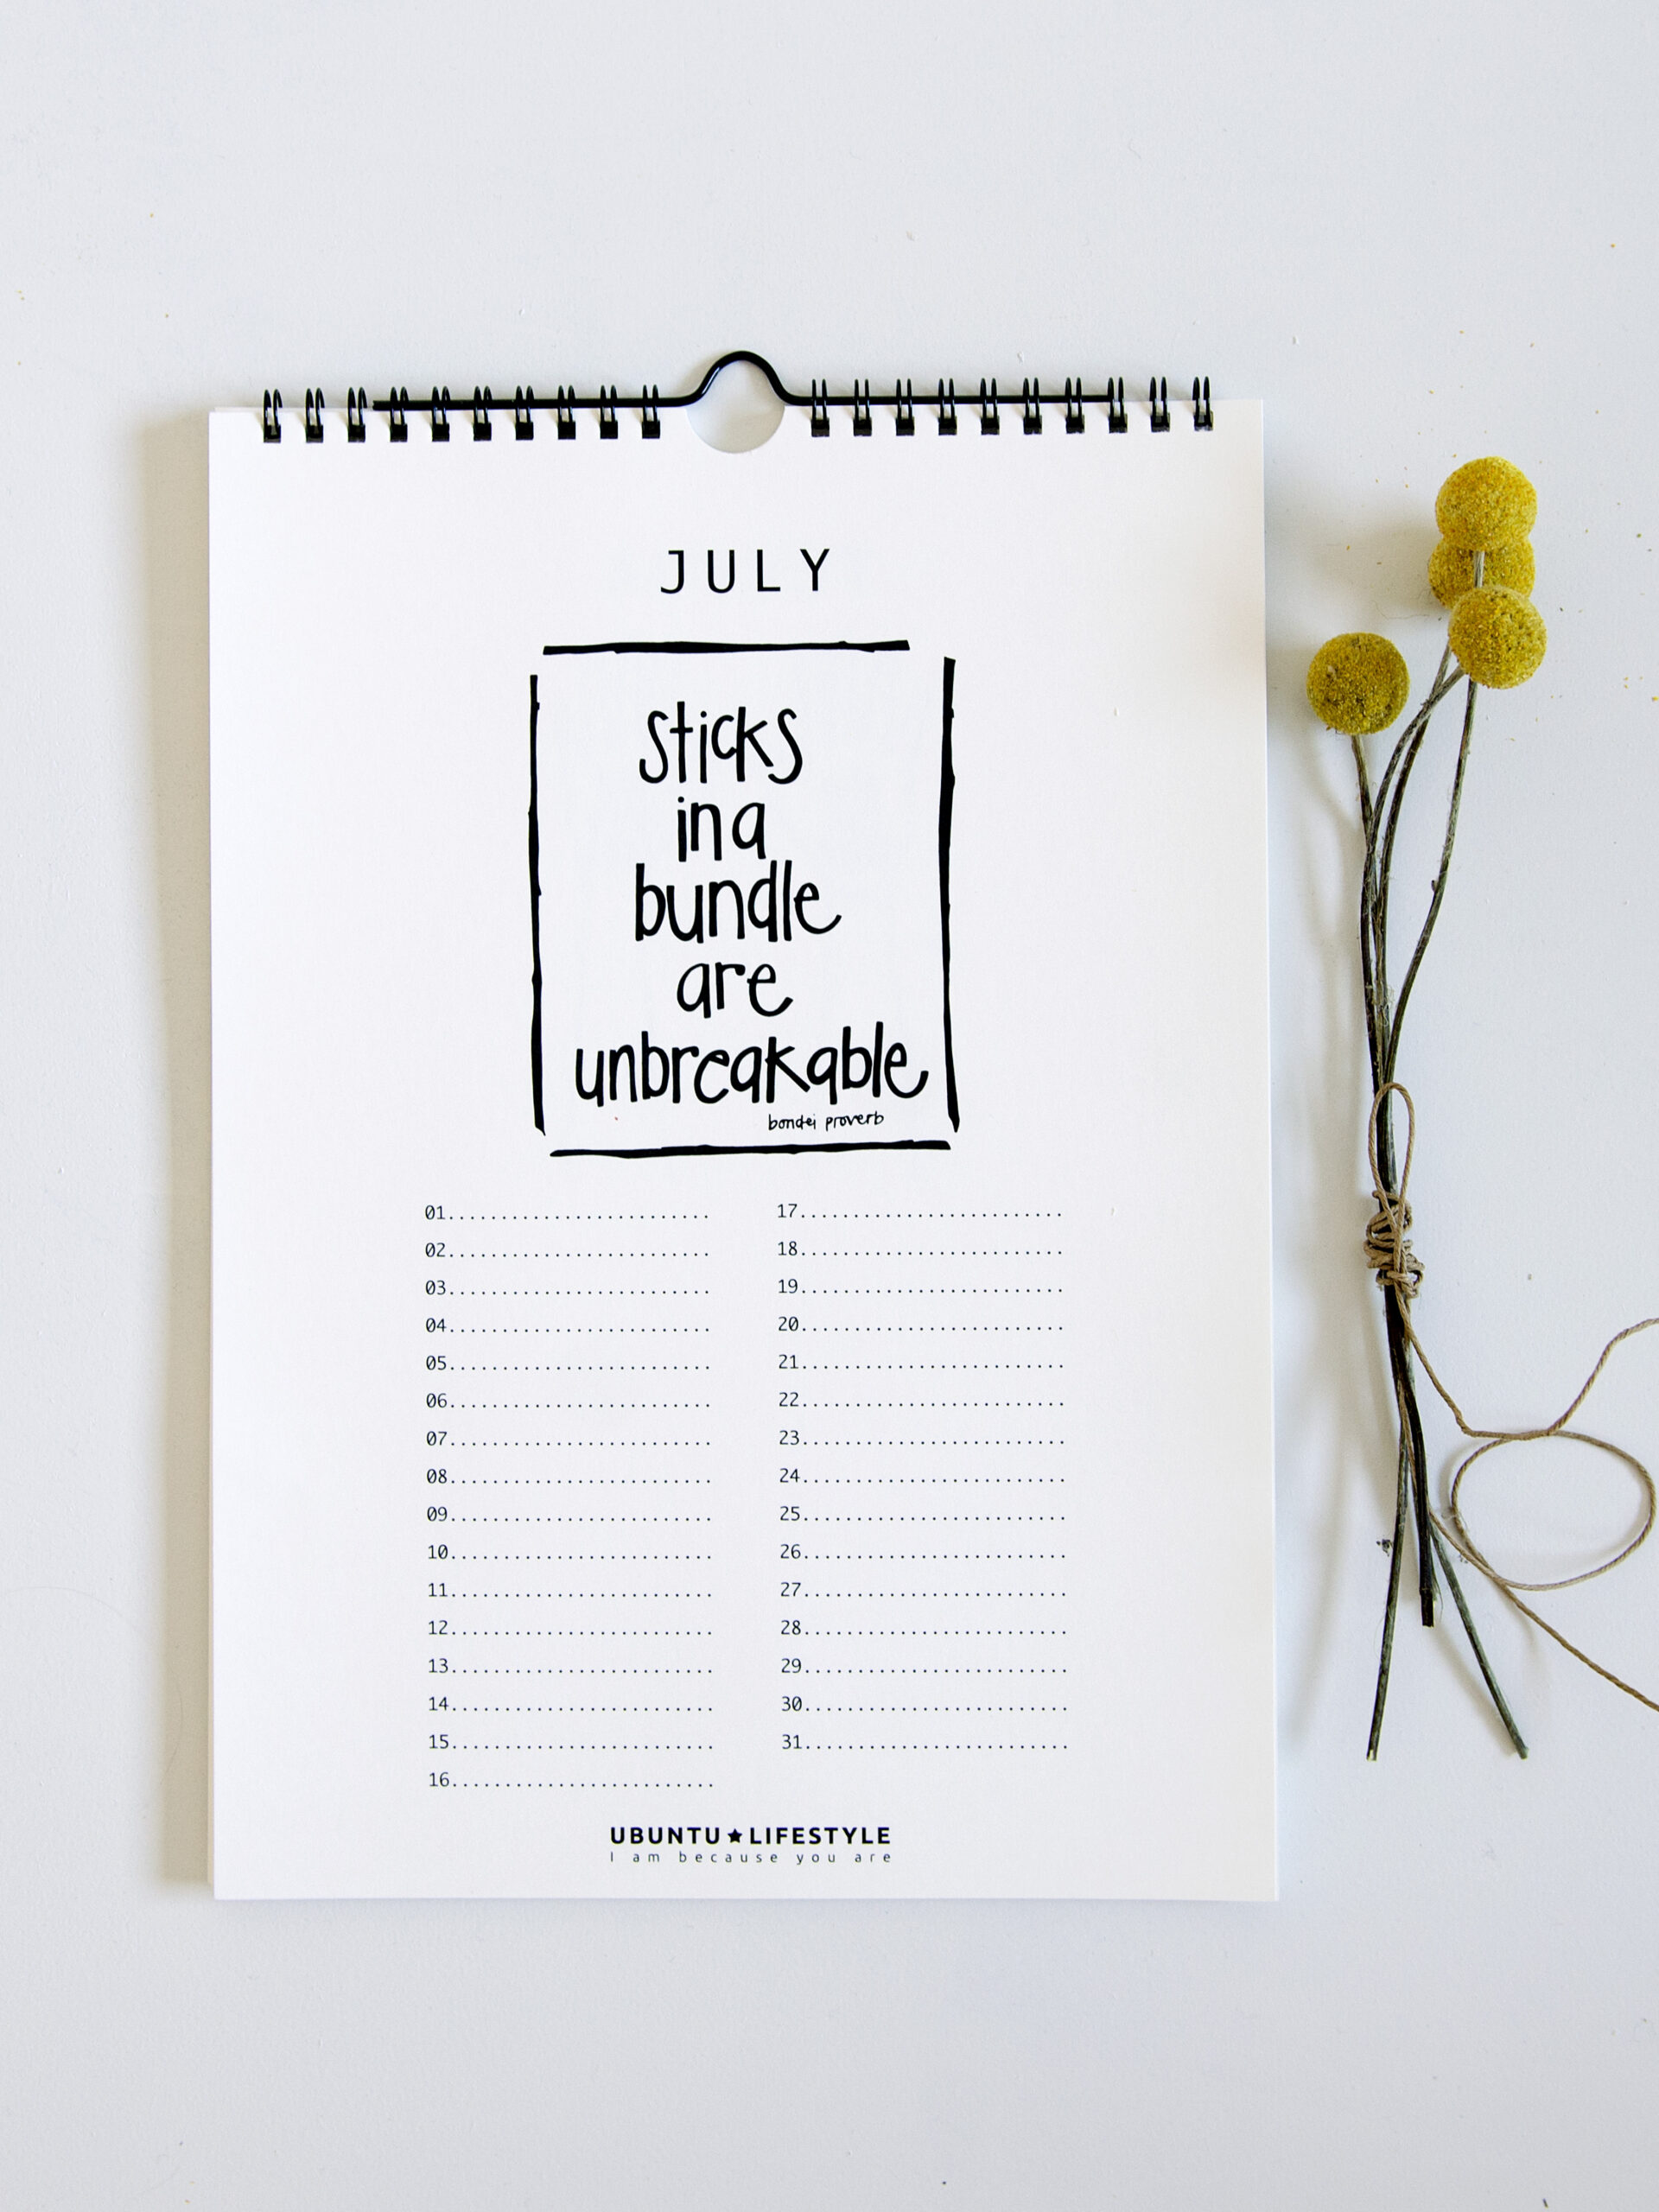 JULY
sticks
in a
bundle
are
unbreakable
bondei proverb
01.........................
02.........................
03.........................
04.........................
05.........................
06.........................
07.........................
08.........................
09.........................
10.........................
11.........................
12.........................
13.........................
14.........................
15.........................
16.........................
17.........................
18.........................
19.........................
20.........................
21.........................
22.........................
23.........................
24.........................
25.........................
26.........................
27.........................
28.........................
29.........................
30.........................
31.........................
UBUNTU★LIFESTYLE
I am because you are